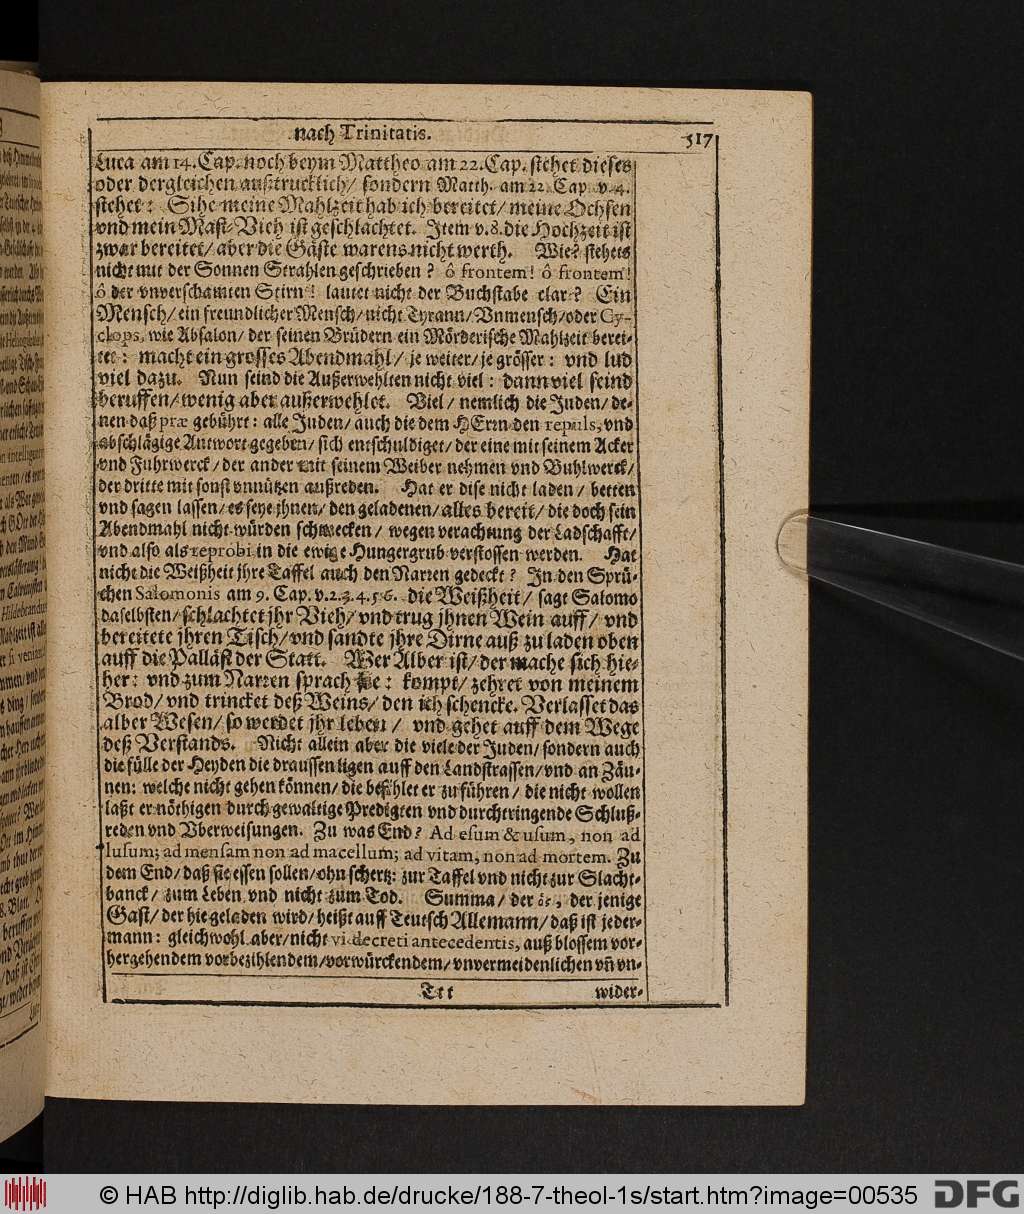 nach Trinitatis.
517
Luca am 14. Cap. noch beym Mattheo am 22. Cap. stehet dieses
oder dergleichen außtrucklich/ sondern Matth. am 22. Cap. v. 4.
stehet: Sihe meine Mahlzeit hab ich bereitet/ meine Ochsen
vnd mein Mast-Vieh ist geschlachtet. Item v. 8. die Hochzeit ist
zwar bereitet/ aber die Gäste warens nicht werth. Wie? stehets
nicht mit der Sonnen Strahlen geschrieben? ô frontem! ô frontem!
ô der vnverschamten Stirn! lautet nicht der Buchstabe clar? Ein
Mensch/ ein freundlicher Mensch/ nicht Tyrann/ Vnmensch/ oder Cy-
clops, wie Absalon/ der seinen Brüdern ein Mörderische Mahlzeit berei-
tet: macht ein grosses Abendmahl/ je weiter/ je grösser: vnd lud
viel dazu. Nun seind die Außerwehlten nicht viel: dann viel seind
beruffen/ wenig aber außerwehlet. Viel/ nemlich die Juden/ de-
nen daß præ gebührt: alle Juden/ auch die dem HErrn den repuls, vnd
abschlägige Antwort gegeben/ sich entschuldiget/ der eine mit seinem Acker
vnd Fuhrwerck/ der ander mit seinem Weiber nehmen vnd Buhlwerck/
der dritte mit sonst vnnützen außreden. Hat er dise nicht laden/ betten
vnd sagen lassen/ es seye jhnen/ den geladenen/ alles bereit/ die doch sein
Abendmahl nicht würden schmecken/ wegen verachtung der Ladschafft/
vnd also als reprobi in die ewige Hungergrub verstossen werden. Hat
nicht die Weißheit jhre Taffel auch den Narren gedeckt? In den Sprü-
chen Salomonis am 9. Cap. v. 2. 3. 4. 5. 6. die Weißheit/ sagt Salomo
daselbsten/ schlachtet jhr Vieh/ vnd trug jhnen Wein auff/ vnd
bereitete jhren Tisch/ vnd sandte jhre Dirne auß zu laden oben
auff die Palläst der Statt. Wer Alber ist/ der mache sich hie-
her: vnd zum Narren sprach sie: kompt/ zehret von meinem
Brod/ vnd trincket deß Weins/ den ich schencke. Verlasset das
alber Wesen/ so werdet jhr leben/ vnd gehet auff dem Wege
deß Verstands. Nicht allein aber die viele der Juden/ sondern auch
die fülle der Heyden die draussen ligen auff den Landstrassen/ vnd an Zäu-
nen: welche nicht gehen können/ die befihlet er zu führen/ die nicht wollen
laßt er nöthigen durch gewaltige Predigten vnd durchtringende Schluß-
reden vnd Vberweisungen. Zu was End? Ad esum & usum, non ad
lusum; ad mensam non ad macellum; ad vitam, non ad mortem. Zu
dem End/ daß sie essen sollen/ ohn schertz: zur Taffel vnd nicht zur Slacht-
banck/ zum Leben vnd nicht zum Tod. Summa/ der ὃς, der jenige
Gast/ der hie geladen wird/ heißt auff Teutsch Allemann/ daß ist jeder-
mann: gleichwohl aber/ nicht vi decreti antecedentis, auß blossem vor-
hergehendem vorbezihlendem/ vorwürckendem/ vnvermeidenlichen vñ vn-
Ttt
wider-
© HAB http://diglib.hab.de/drucke/188-7-theol-1s/start.htm?image=00535
DFG